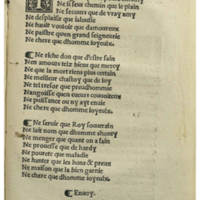 Il nest seur chemin que le plain
Ne secours que de vray amy
Ne desplaisir que ialousie
Ne hault vouloir que damoureux
Ne paistre quen grand seigneurie
Ne chere que dhomme ioyeulx.
Ne riche don que destre sain
Nen amours tels biens que mercy
Ne que la mort riens plus certain
Ne meilleur chastoy que de soy
Ne tel tresor que preudhommie
Nangoisse quen cueurs conuoiteux
Ne puissance ou ny ayt enuie
Ne chere que dhomme ioyeulx.
Ne seruir que Roy souuerain
Ne lait nom que dhomme
Ne menger que quant on a fain
Ne prouesse que de hardy
Ne poureté que maladie
Ne hanter que les bons & preux
Ne maison que la bien garnie
Ne chere que dhomme ioyeulx.
¶Enuoy.